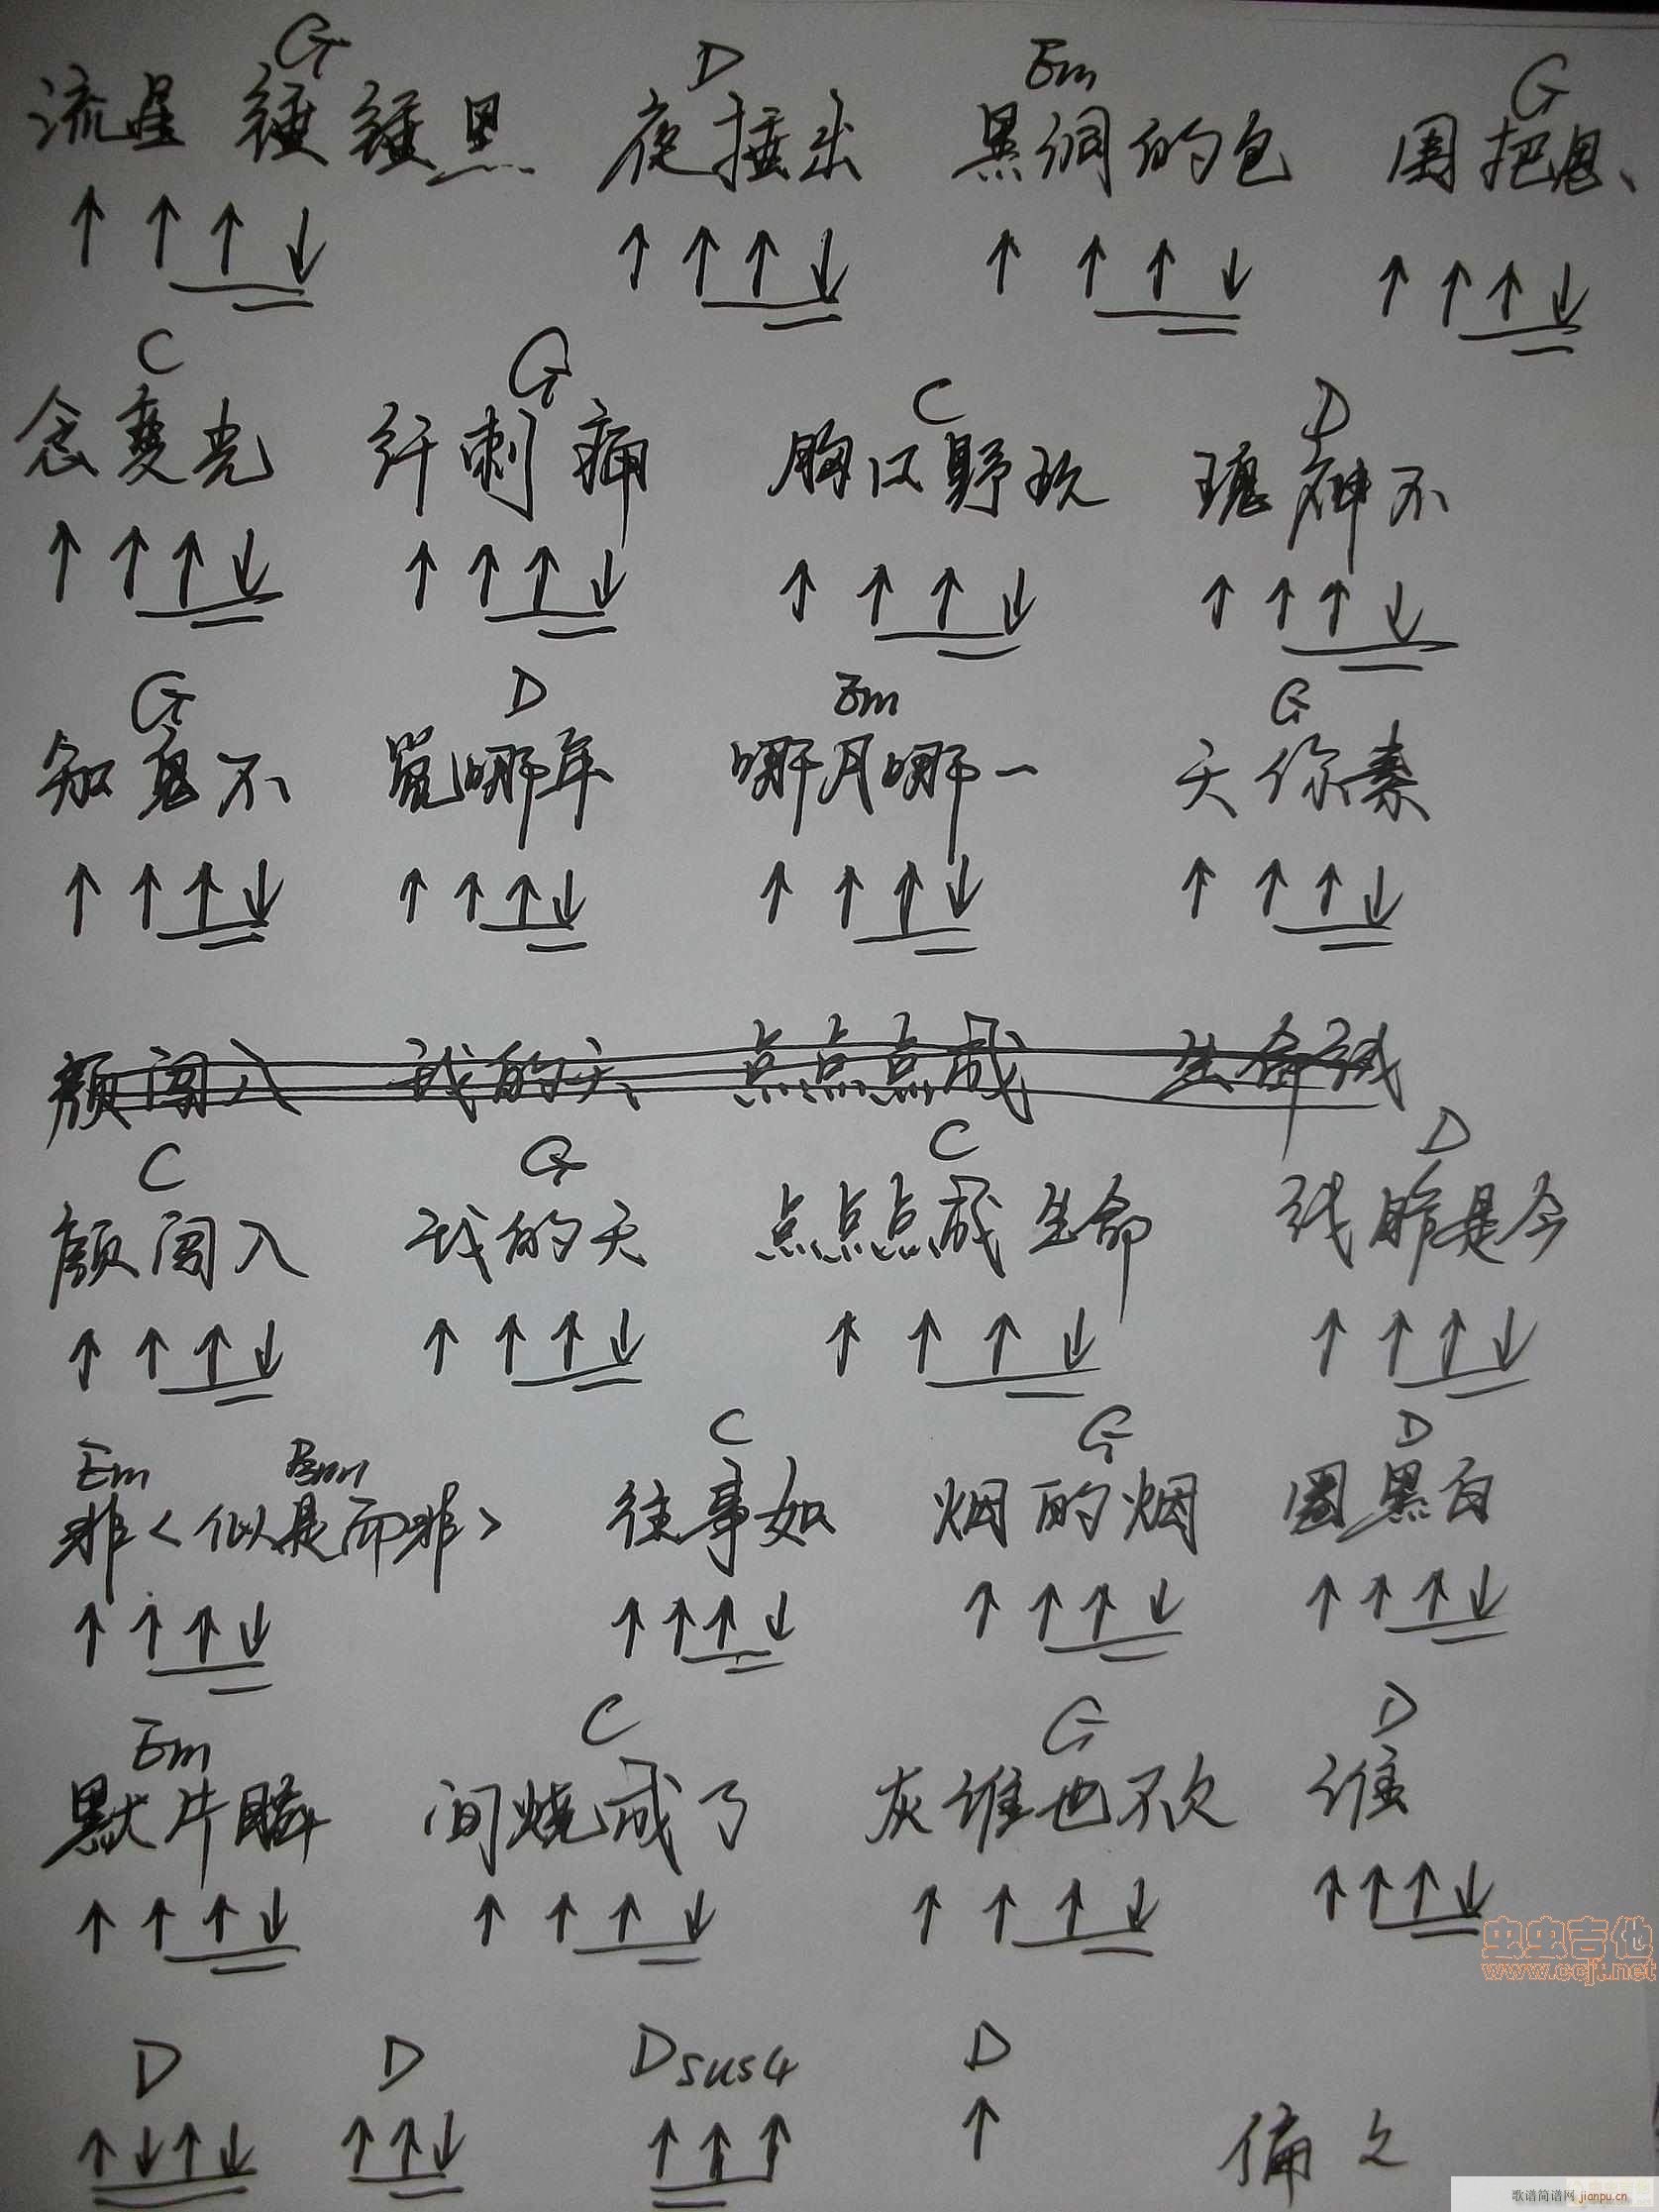 G D Em G
流星锤锤黑 夜捶出 黑洞的包 围把思、
↑ ↑ ↑ ↓ ↑ ↑ ↑ ↓ ↑ ↑ ↑ ↓ ↑ ↑ ↑ ↓
C G C D
念变光 纤刺痛 胸口野玫 瑰神不
↑ ↑ ↑ ↓ ↑ ↑ ↑ ↓ ↑ ↑ ↑ ↓ ↑ ↑ ↑ ↓
G D Em G
知鬼不 觉哪年 哪月哪一 天你素
↑ ↑ ↑ ↓ ↑ ↑ ↑ ↓ ↑ ↑ ↑ ↓ ↑ ↑ ↑ ↓
颜闯入 我的天 点点点成 生命线
C G C D
颜闯入 我的天 点点点成生命 线昨是今
↑ ↑ ↑ ↓ ↑ ↑ ↑ ↓ ↑ ↑ ↑ ↓ ↑ ↑ ↑ ↓
Em Bm C G D
非<似是而非> 往事如 烟的烟 圈黑白
↑ ↑ ↑ ↓ ↑ ↑ ↑ ↓ ↑ ↑ ↑ ↓ ↑ ↑ ↑ ↓
Em C G D
默片瞬 间烧成了 灰谁也不欠 谁
↑ ↑ ↑ ↓ ↑ ↑ ↑ ↓ ↑ ↑ ↑ ↓ ↑ ↑ ↑ ↓
虫虫吉他
www.ccjt.net
D D Dsus4 D
↑ ↓ ↑ ↓ ↑ ↑ ↓ ↑ ↑ ↑ ↑ 偏
歌谱简谱网 jianpu.cn